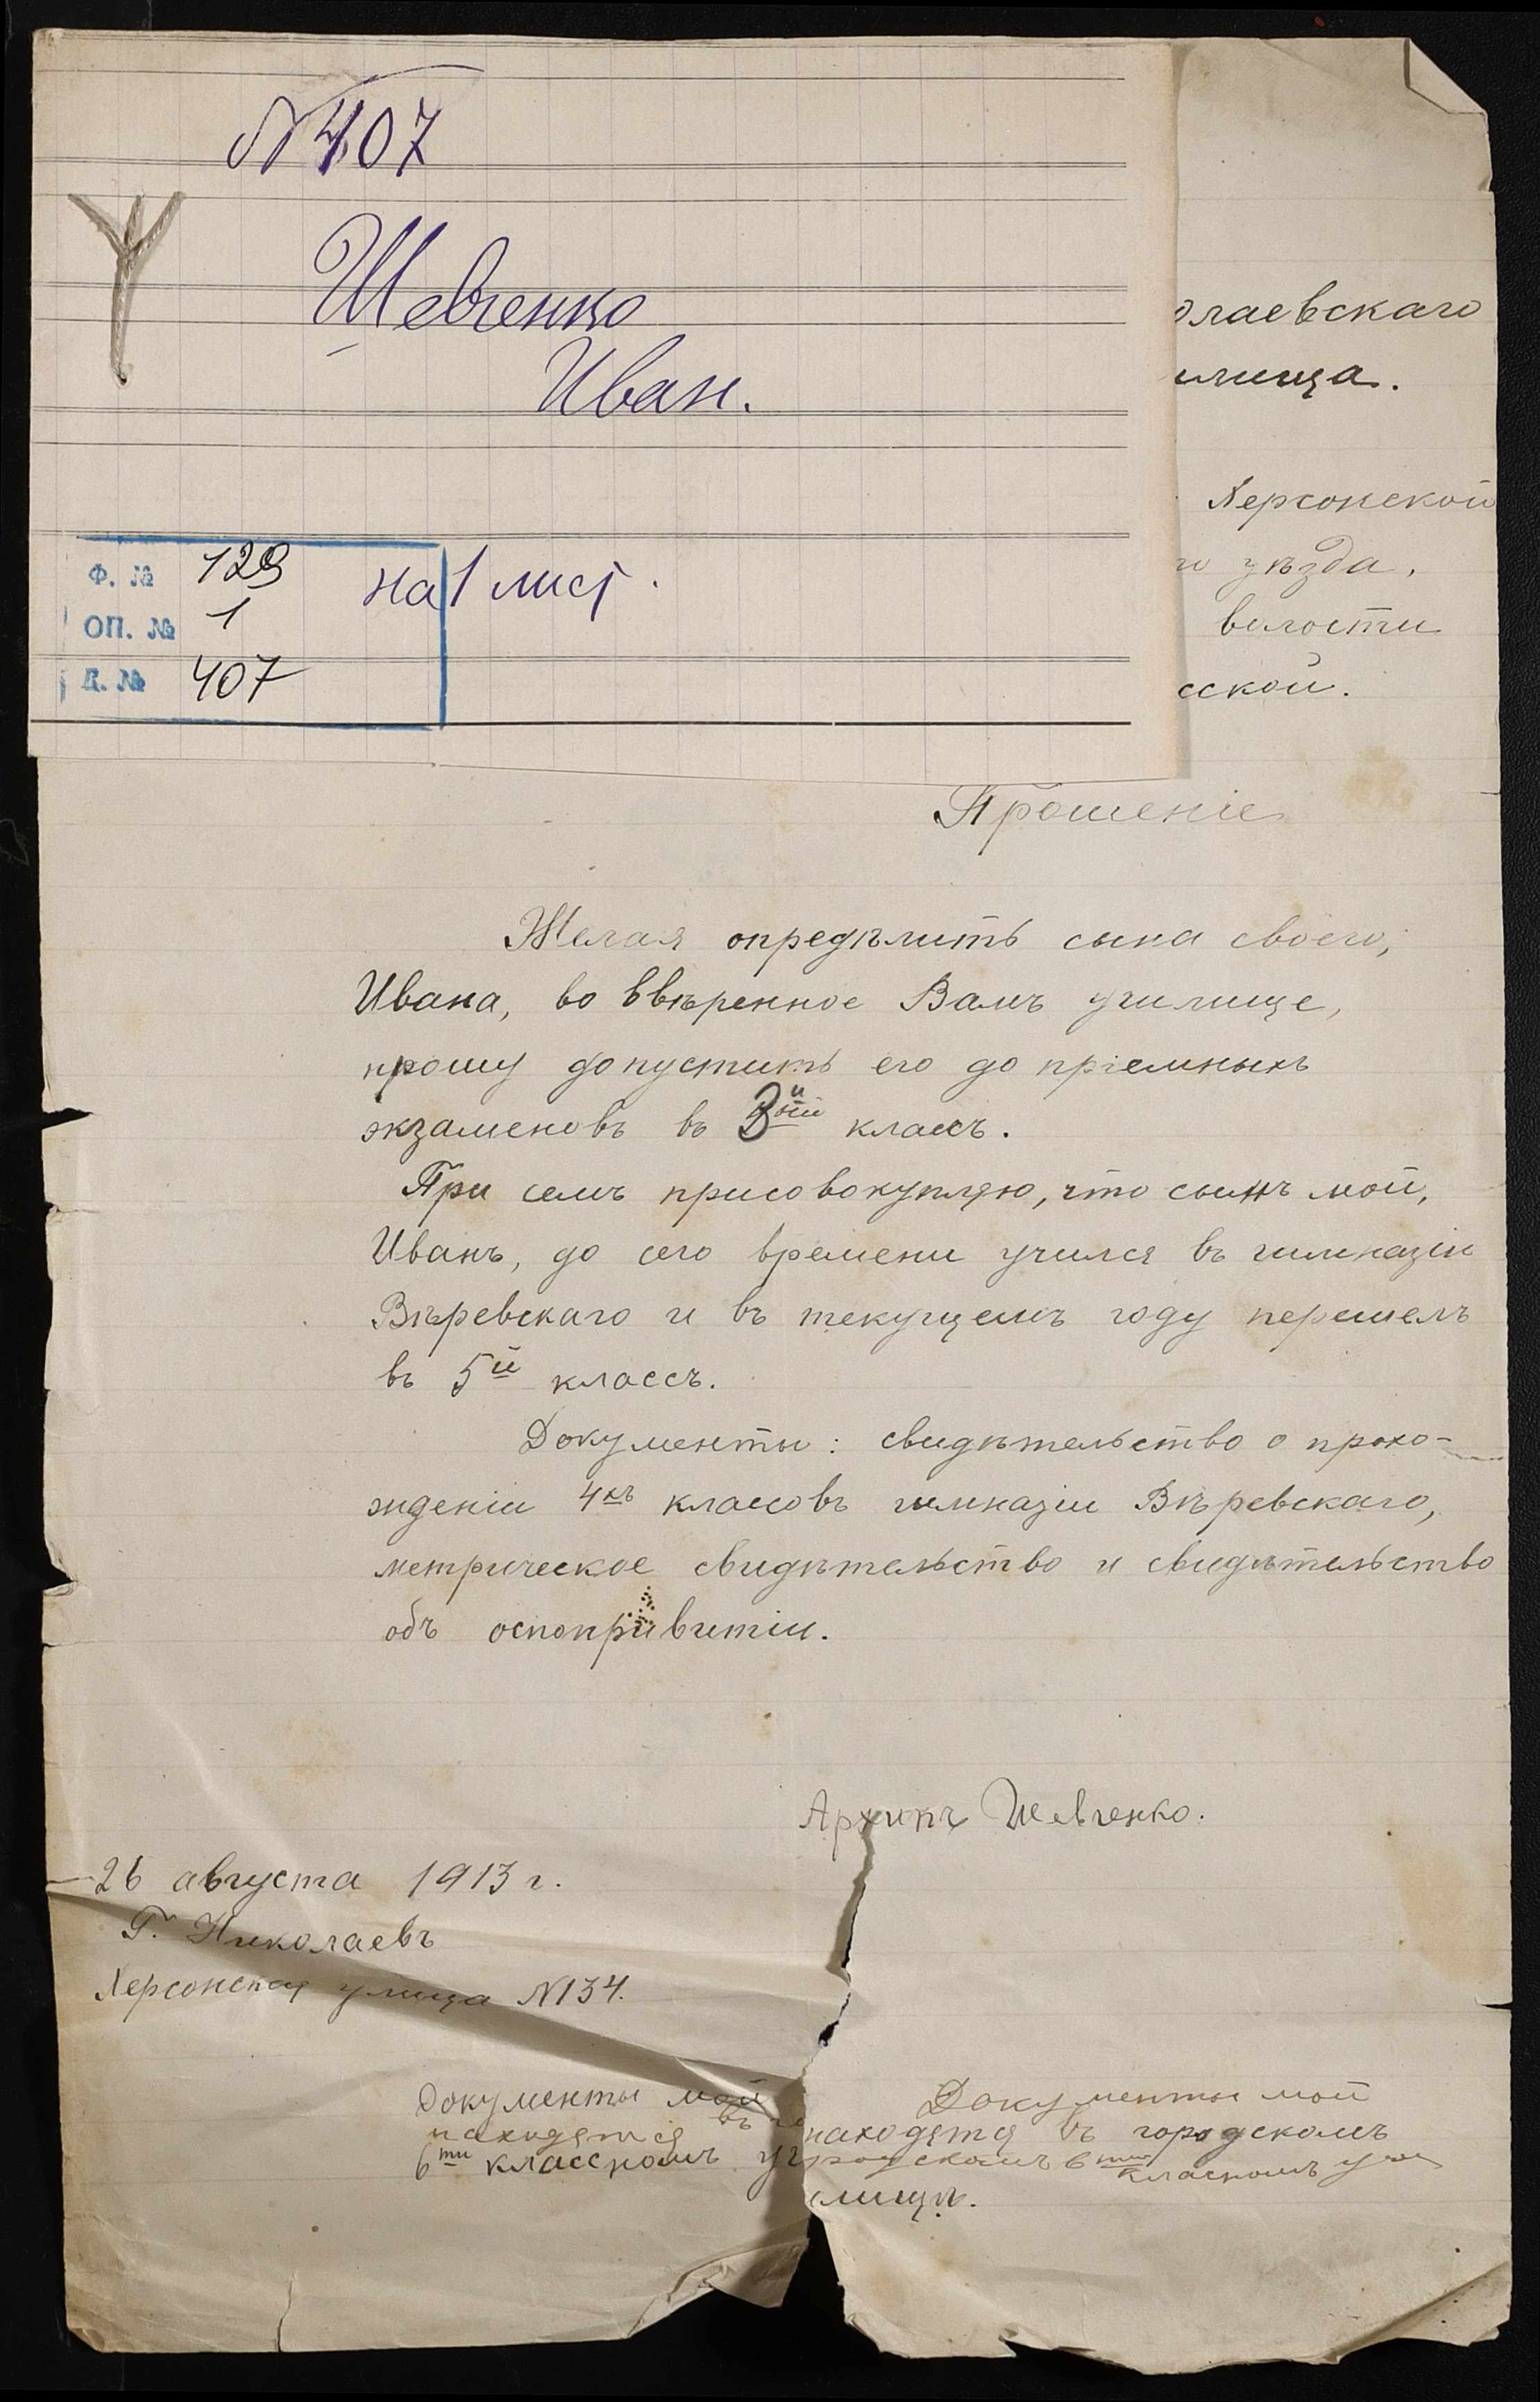 № 407
Шевченко
Иван.
Ф. № 129
ОП. № 1
Д. № 407
на 1 лист.
олаевскаго
илища.
Херсонской
го уѣзда,
волости
сской.
Прошеніе
Желая опредѣлить сына своего,
Ивана, во ввѣренное Вамъ училище,
прошу допустить его до пріемныхъ
экзаменовъ въ 3й классъ.
При семъ присовокупляю, что сынъ мой,
Иванъ, до сего времени учился въ гимназіи
Вѣревскаго и въ текущемъ году перешелъ
въ 5й классъ.
Документы: свидѣтельство о прохо-
жденіи 4хъ классовъ гимназіи Вѣревскаго,
метрическое свидѣтельство и свидѣтельство
объ оспопривитіи.
Архипъ Шевченко.
26 августа 1913 г.
Г. Николаевъ
Херсонская улица №134.
Документы мои
находятся въ
6ти классномъ
Документы мои
находятся въ городскомъ
6ти класномъ учи
лищѣ.